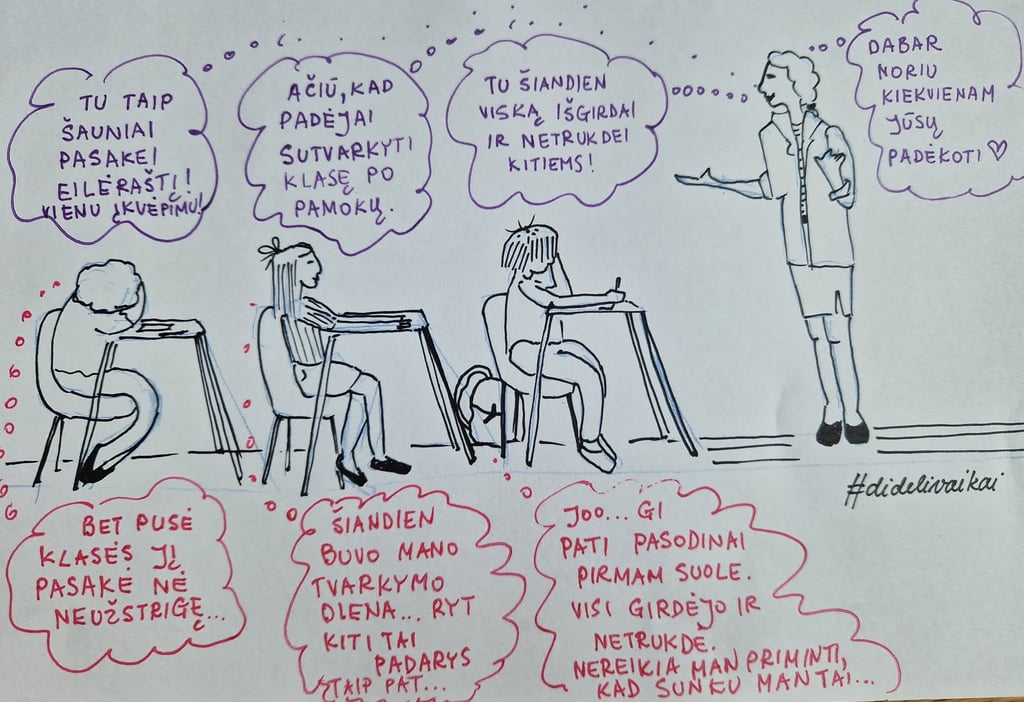 DABAR
NORIU
KIEKVIENAM
JŪSŲ
PADĖKOTI ♡
TU TAIP
ŠAUNIAI
PASAKEI
EILĖRAŠTĮ!
VIENU ĮKVĖPIMU!
AČIŪ, KAD
PADĖJAI
SUTVARKYTI
KLASĘ PO
PAMOKŲ.
TU ŠIANDIEN
VISKĄ IŠGIRDAI
IR NETRUKDEI
KITIEMS!
#didelivaikai
BET PUSĖ
KLASĖS JĮ
PASAKĖ NĖ
NEUŽSTRIGĘ...
ŠIANDIEN
BUVO MANO
TVARKYMO
DIENA... RYT
KITI TAI
PADARYS
TAIP PAT...
JOO... GI
PATI PASODINAI
PIRMAM SUOLE.
VISI GIRDĖJO IR
NETRUKDĖ.
NEREIKIA MAN PRIMINTI,
KAD SUNKU MAN TAI...